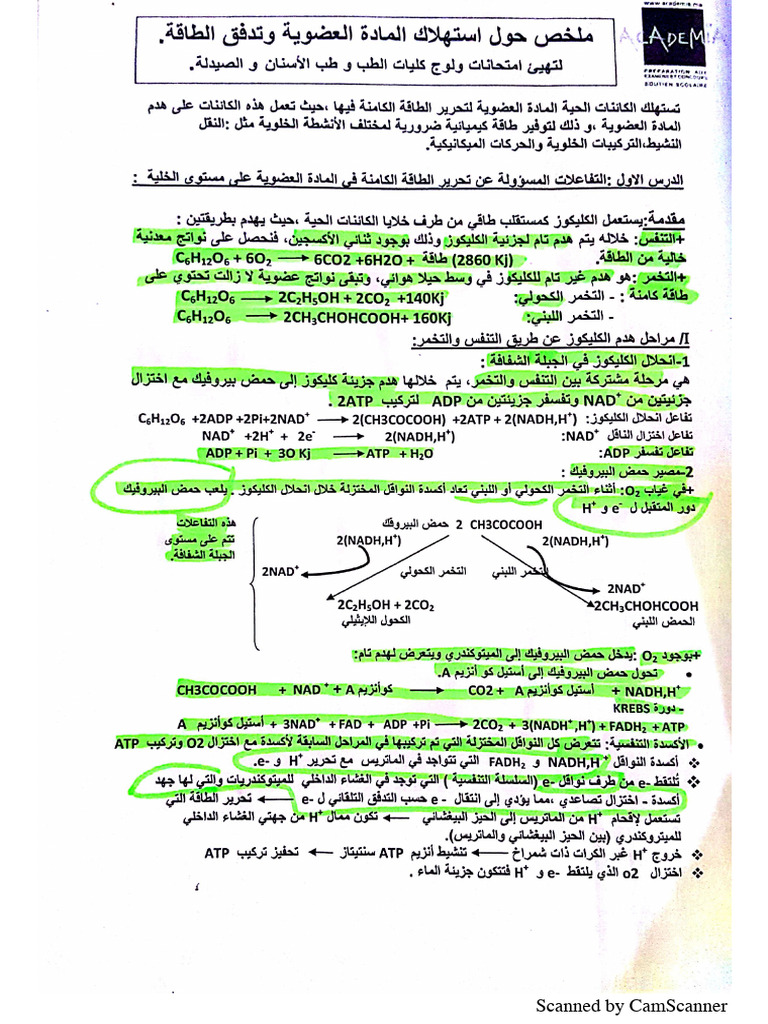 www.academia.ma
ACADEMIA
PREPARATION AUX
EXAMENS ET CONCOURS
SOUTIEN SCOLAIRE
ملخص حول استهلاك المادة العضوية وتدفق الطاقة.
لتهيئ امتحانات ولوج كليات الطب و طب الأسنان و الصيدلة.
تستهلك الكائنات الحية المادة العضوية لتحرير الطاقة الكامنة فيها ،حيث تعمل هذه الكائنات على هدم
المادة العضوية ،و ذلك لتوفير طاقة كيميائية ضرورية لمختلف الأنشطة الخلوية مثل :النقل
النشيط،التركيبات الخلوية والحركات الميكانيكية.
الدرس الاول :التفاعلات المسؤولة عن تحرير الطاقة الكامنة في المادة العضوية على مستوى الخلية :
مقدمة:يستعمل الكليكوز كمستقلب طاقي من طرف خلايا الكائنات الحية ،حيث يهدم بطريقتين :
+التنفس: خلاله يتم هدم تام لجزئية الكليكوز وذلك بوجود ثنائي الأكسجين، فنحصل على نواتج معدنية
خالية من الطاقة. C₆H₁₂O₆ + 6O₂ ⟶ 6CO2 +6H2O + طاقة (2860 Kj)
+التخمر: هو هدم غير تام للكليكوز في وسط حيلا هوائي، وتبقى نواتج عضوية لا زالت تحتوي على
طاقة كامنة : - التخمر الكحولي: C₆H₁₂O₆ ⟶ 2C₂H₅OH + 2CO₂ +140Kj
- التخمر اللبني: C₆H₁₂O₆ ⟶ 2CH₃CHOHCOOH+ 160Kj
I/ مراحل هدم الكليكوز عن طريق التنفس والتخمر:
1-انحلال الكليكوز في الجبلة الشفافة :
هي مرحلة مشتركة بين التنفس والتخمر، يتم خلالها هدم جزيئة كليكوز إلى حمض بيروفيك مع اختزال
جزئيتين من NAD⁺ وتفسفر جزيئتين من ADP لتركيب 2ATP .
تفاعل انحلال الكليكوز: C₆H₁₂O₆ +2ADP +2Pi+2NAD⁺ ⟶ 2(CH3COCOOH) +2ATP + 2(NADH,H⁺)
تفاعل اختزال الناقل NAD⁺: NAD⁺ +2H⁺ + 2e⁻ ⟶ 2(NADH,H⁺)
تفاعل تفسفر ADP: ADP + Pi + 3O Kj ⟶ ATP + H₂O
2-مصير حمض البيروفيك :
+في غياب O₂: أثناء التخمر الكحولي أو اللبني تعاد أكسدة النواقل المختزلة خلال انحلال الكليكوز . يلعب حمض البيروفيك
دور المتقبل ل e⁻ و H⁺
هذه التفاعلات
تتم على مستوى
الجبلة الشفافة.
حمض البيروفك 2 CH3COCOOH
2(NADH,H⁺) 2(NADH,H⁺)
2NAD⁺ التخمر الكحولي التخمر اللبني
2NAD⁺
2C₂H₅OH + 2CO₂ 2CH₃CHOHCOOH
الكحول اللإيثيلي الحمض اللبني
+بوجود O₂ :يدخل حمض البيروفيك إلى الميتوكندري ويتعرض لهدم تام:
• تحول حمض البيروفيك إلى أستيل كو أنزيم A.
CH3COCOOH + NAD⁺ + A كوأنزيم ⟶ CO2 + A أستيل كوأنزيم + NADH,H⁺
- دورة KREBS
A أستيل كوأنزيم + 3NAD⁺ + FAD + ADP +Pi ⟶ 2CO₂ + 3(NADH⁺,H⁺) + FADH₂ + ATP
• الأكسدة التنفسية: تتعرض كل النواقل المختزلة التي تم تركيبها في المراحل السابقة لأكسدة مع اختزال O2 وتركيب ATP
❖ أكسدة النواقل NADH,H⁺ و FADH₂ التي تتواجد في الماتريس مع تحرير H⁺ و e-.
❖ تلتقط e- من طرف نواقل e- (السلسلة التنفسية ) التي توجد في الغشاء الداخلي للميتوكندريات والتي لها جهد
أكسدة - اختزال تصاعدي ،مما يؤدي إلى انتقال e- حسب التدفق التلقائي ل e- ⟵ تحرير الطاقة التي
تستعمل لإقحام H⁺ من الماتريس إلى الحيز البيغشائي ⟵ تكون ممال H⁺ من جهتي الغشاء الداخلي
للميتروكندري (بين الحيز البيغشائي والماتريس).
❖ خروج H⁺ عبر الكرات ذات شمراخ ⟵ تنشيط أنزيم ATP سنتيتاز ⟵ تحفيز تركيب ATP
❖ اختزال o2 الذي يلتقط e- و H⁺ فتتكون جزيئة الماء .
Scanned by CamScanner